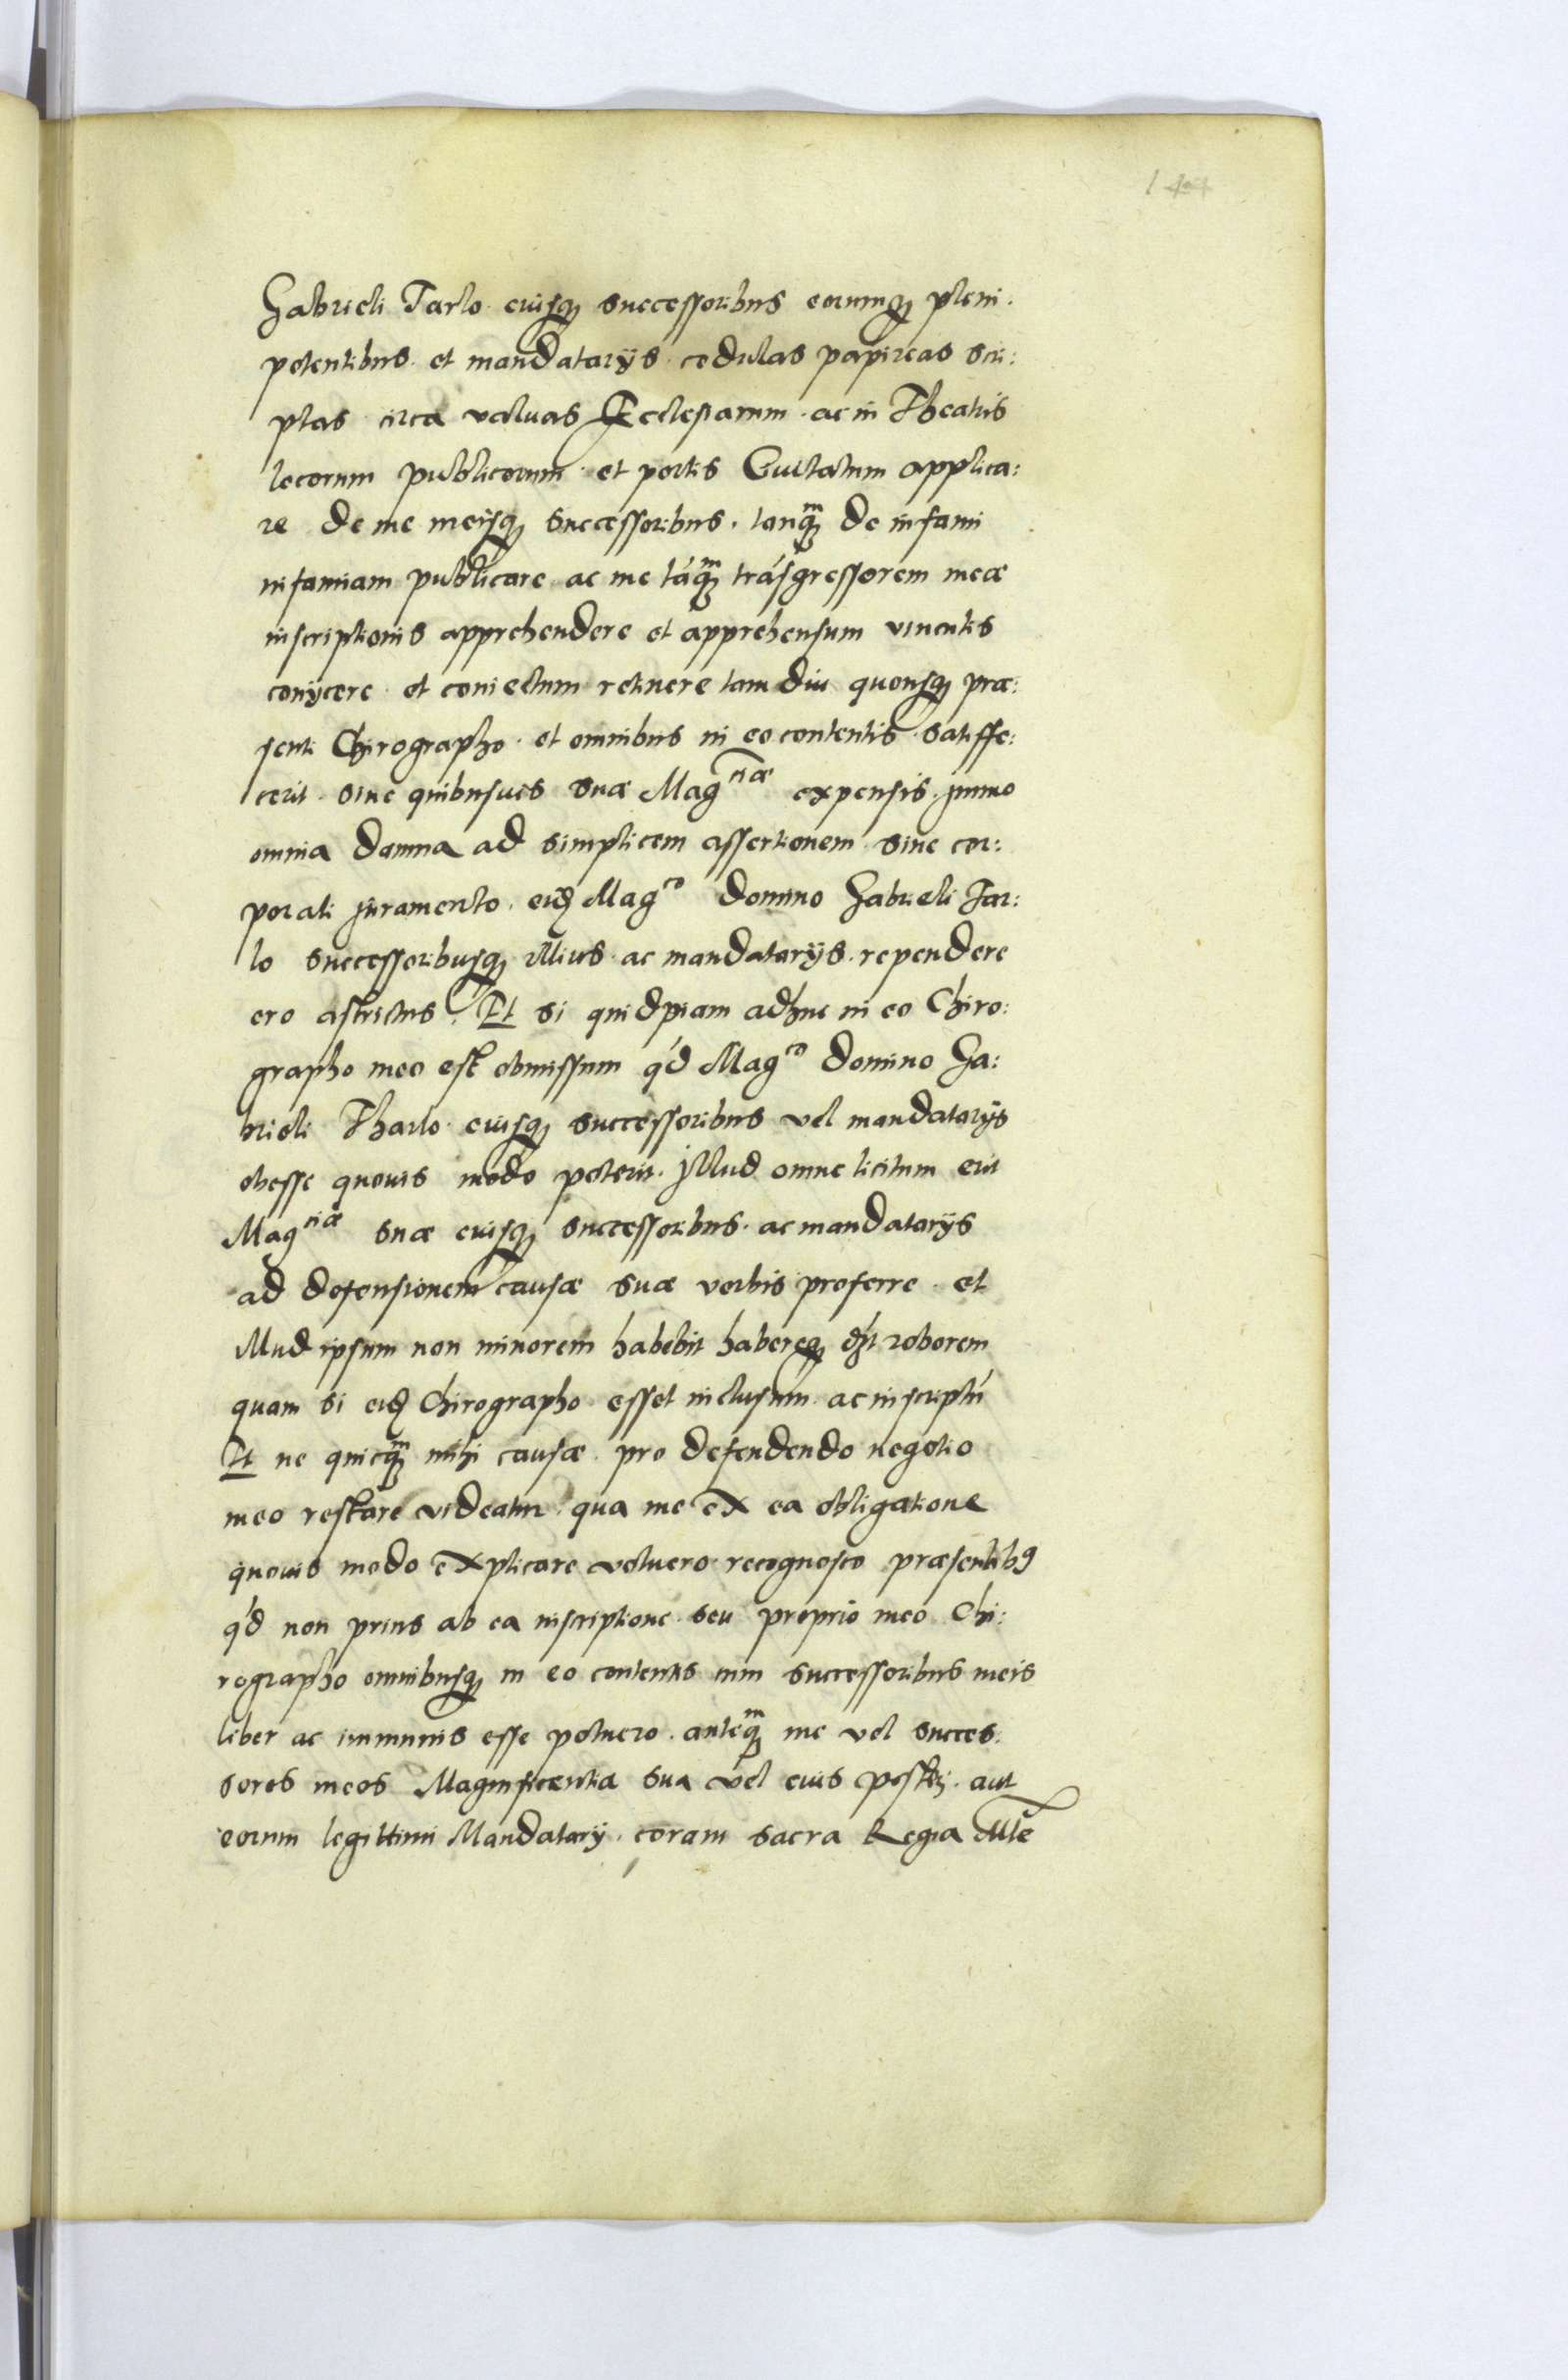 Gabrieli Tarlo. eiusq₃ successoribus eorumq₃ pleni.
potentibus. et mandatarijs. cedulas papireas scri:
ptas circa valuas Ecclesiarum. ac in Theatris
locorum publicorum. et portis Ciuitatum applica:
re de me meisq₃ successoribus. tanq₃ᵐ de infami
infamiam publicare. ac me tāq₃ᵐ trāsgressorem meæ
inscriptionis apprehendere et apprehensum vinculis
conijcere. et coniectum retinere tam diu quousq₃ præ:
senti Chirographo. et omnibus in eo contentis. satisfe:
cerit. sine quibusuis suæ Magᶜⁱᵃᵉ expensis. jmmo
omnia damna ad simplicem assertionem sine cor:
porali juramento. eidē Magᶜᵒ Domino Gabrieli Tar:
lo successoribusq₃ illius. ac mandatarijs. rependere
ero astrictus. Et si quidpiam adhuc in eo Chiro:
grapho meo est obmissum q'd Magᶜᵒ Domino Ga:
brieli Tharlo. eiusq₃ successoribus vel mandatarijs
obesse quouis modo poterit. jllud omne licitum erit
Magᶜⁱᵃᵉ suæ eiusq₃ successoribus. ac mandatarijs
ad defensionem causæ suæ verbis proferre. et
illud ipsum non minorem habebit habereq₃ roborem
quam si eidē Chirographo. esset inclusum. ac inscriptū
Et ne quicq₃ᵐ mihi causæ. pro defendendo negotio
meo restare videatur. qua me ex ea obligatione
quouis modo explicare voluero. recognosco præsentibꝰ
q'd non prius ab ea inscriptione. seu proprio meo Chi:
rographo omnibusq₃ in eo contentis cum successoribus meis
liber ac immunis esse potuero. anteq₃ᵐ me vel succes:
sores meos Magnificentia sua vel eius poster₃. aut
eorum legittimi Mandatarij. coram Sacra Regia Mte